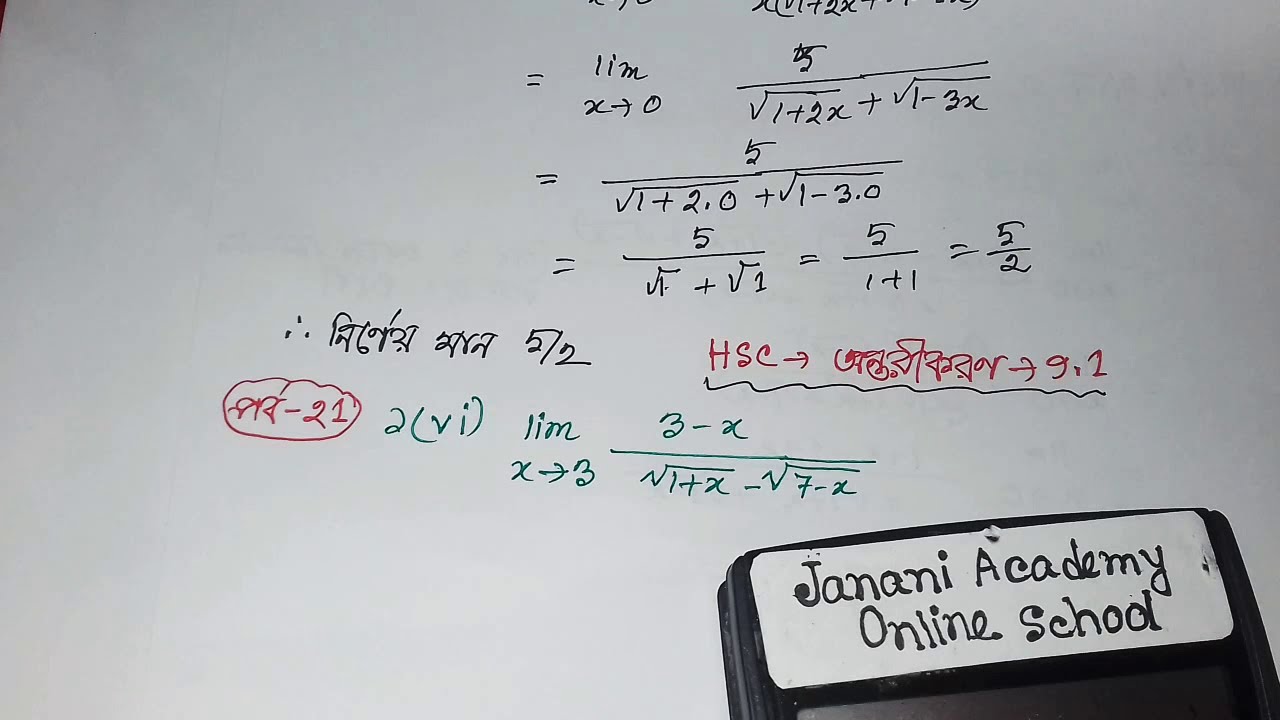 x(√1+2x+
= lim x→0 5/(√1+2x + √1-3x)
= 5/(√1+2.0 + √1-3.0)
= 5/(√1 + √1) = 5/(1+1) = 5/2
∴ নির্ণেয় মান 5/2
HSC → অন্তরীকরণ → 9.1
পর্ব-21 2(vi) lim x→3 (3-x)/(√1+x - √7-x)
Janani Academy
Online School